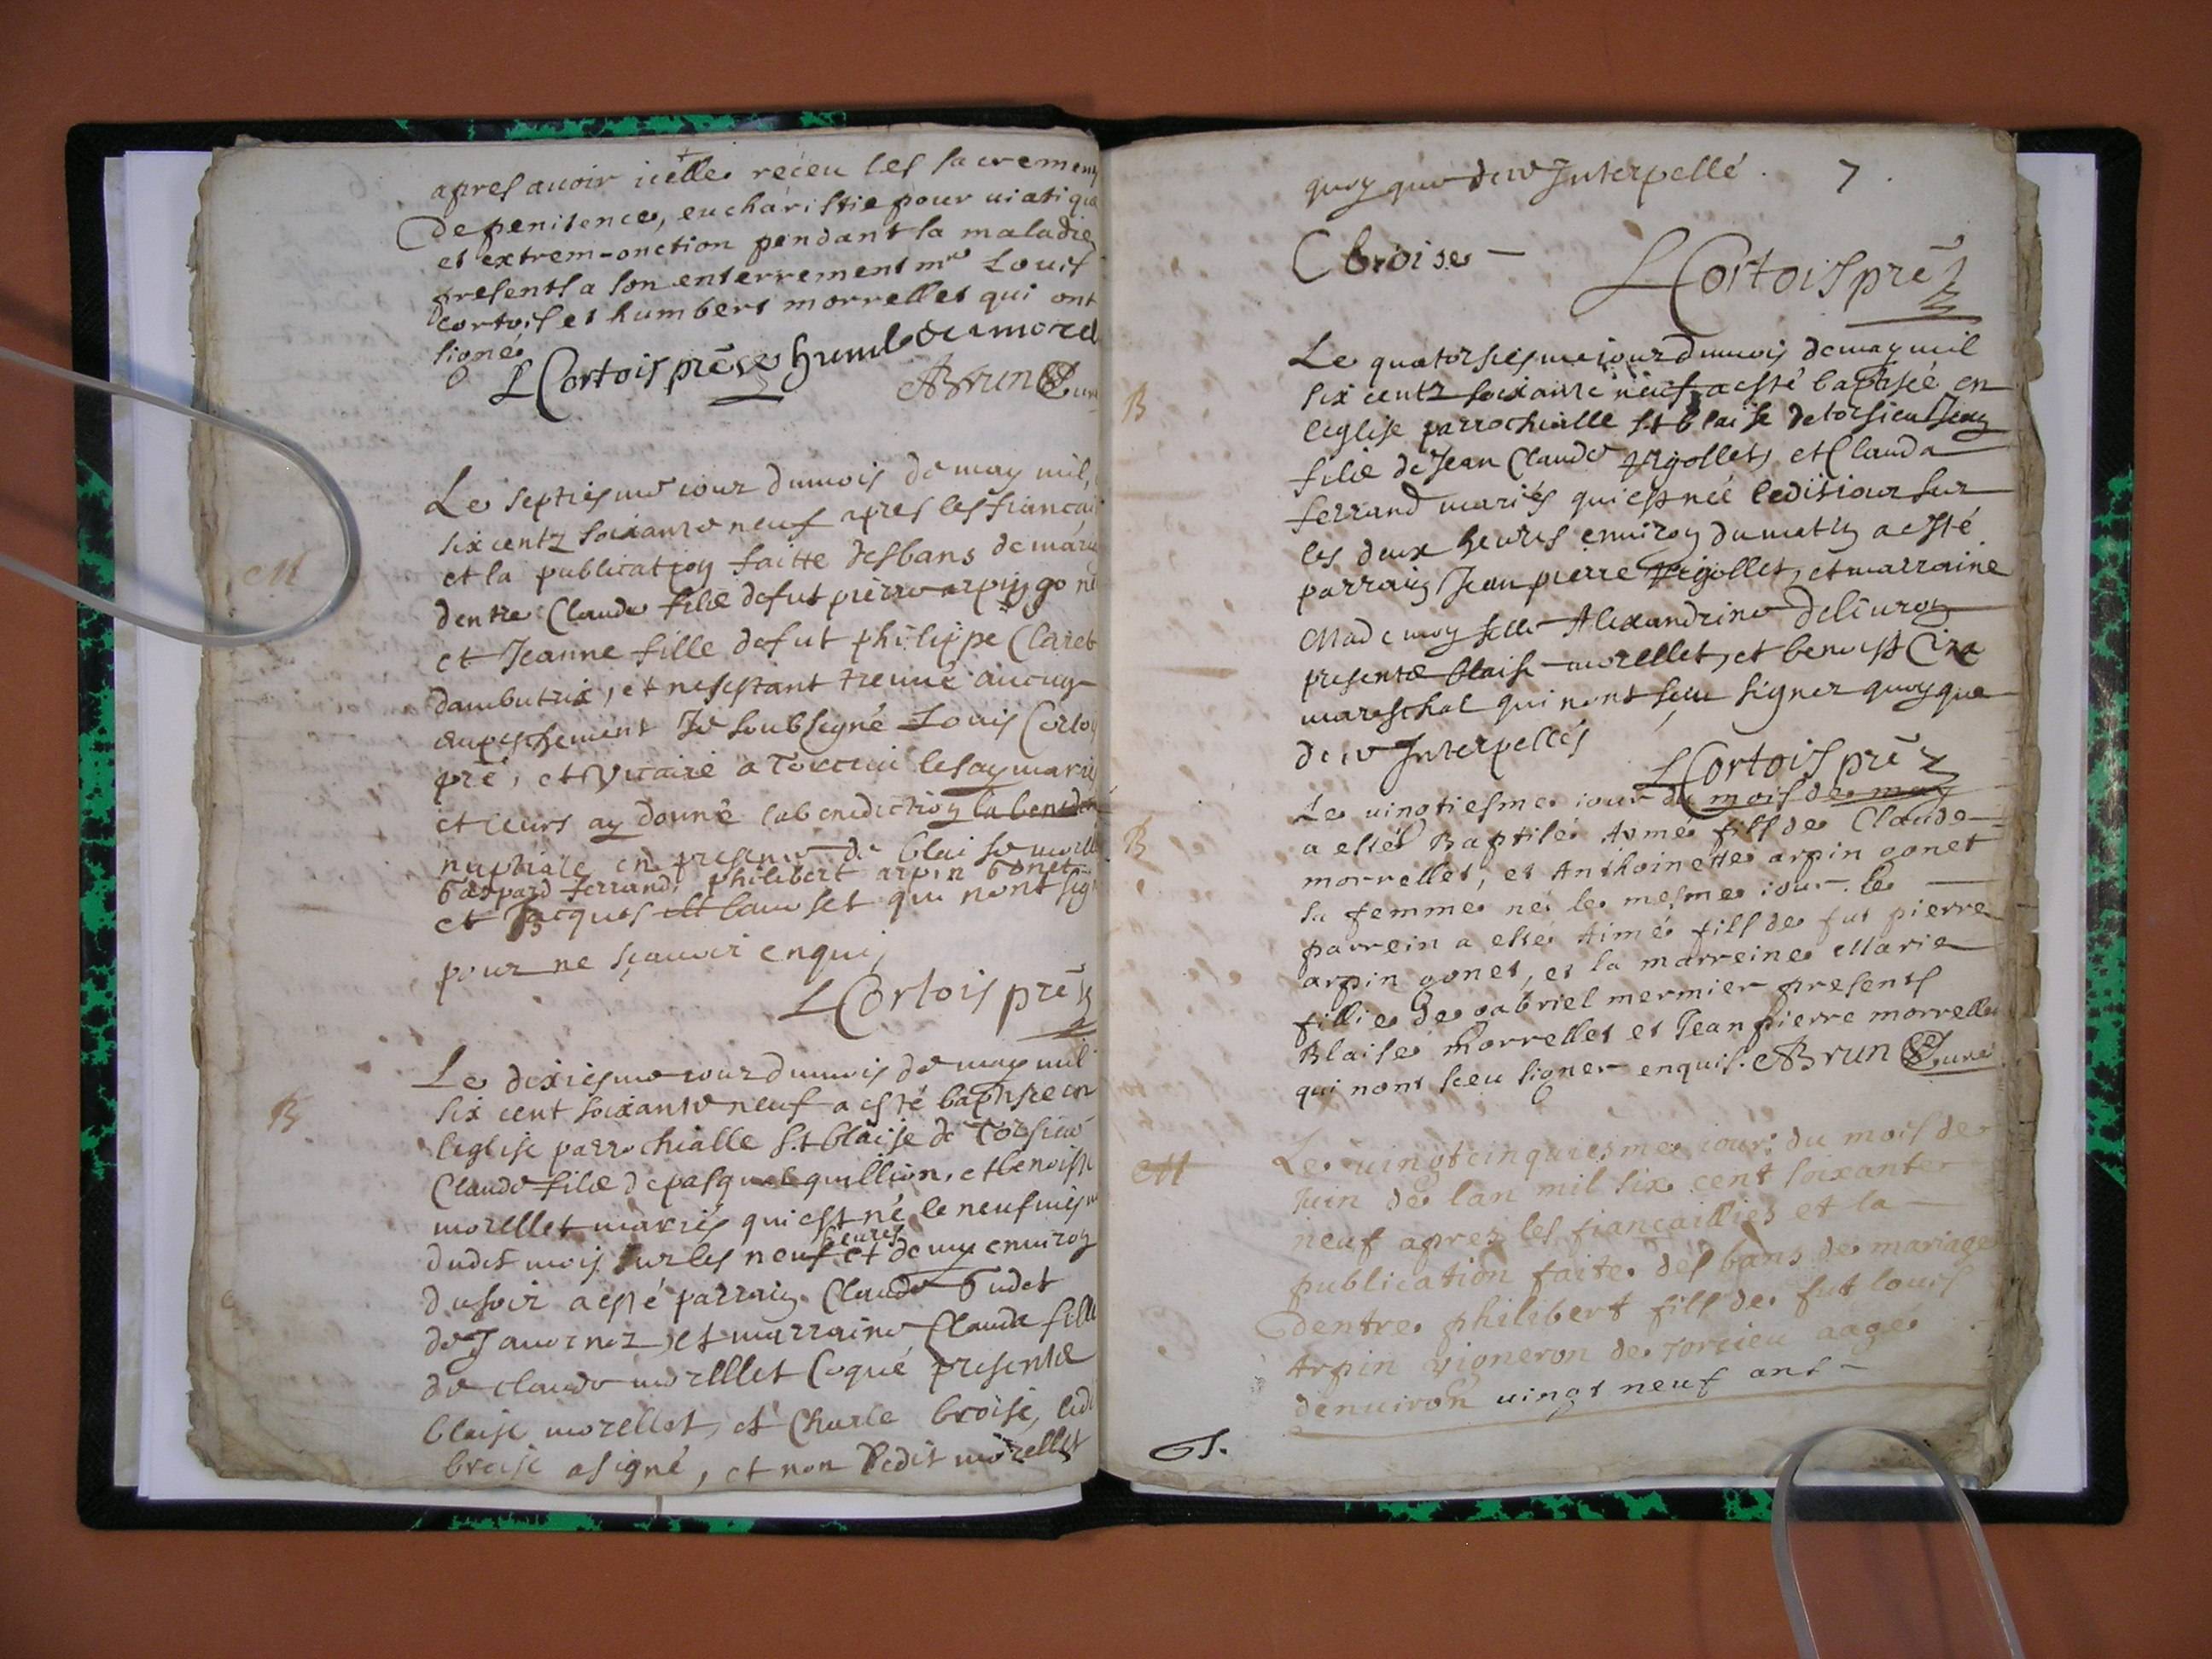 apres avoir icelle receu les sacremens
de penitence, eucharistie pour viatique
et extrem-onction pendant sa maladie
presents a son enterrement mre Louis
cortois et humbert morrellet qui ont
signé
L Cortois prē humber morel
Brun Curé
M
Le septiesme iour du mois de may mil
six centz soixante neuf apres les fiancai
et la publication faitte des bans de maria
dentre Claude filz de fut pierre arpin gonet
et Jeanne fille de fut philippe Claret
dambutrix, et ne sestant treuué aucun
empeschement Je soubsigné Louis Cortois
prē, et vicaire a Torcieu les ay mariés
et leurs ay donné la benediction la bened
nuptiale en presence de blaise morell
Gaspard ferrand, philibert arpin Gonet
et Jacques lauset qui nont sig
pour ne sçauoir enquis
L Cortois prē
B
Le dixiesme iour du mois de may mil
six cent soixante neuf a esté baptisé en
leglise parrochialle St blaise de Torsieu
Claude filz de pasqual quillion, et benoiste
morellet mariés qui est né le neufuiesm
heures
dudit mois sur les neuf et demy enuiron
du soir a esté parrain Claude Gudet
de Jauornoz, et marraine Clauda fille
de claude morelllet Coqué presentz
blaise morellet, et Charle broise, led
broise a signé, et non ledit morellet
quoy que de ce Interpellé. 7.
C broise
L Cortois prē
B
Le quatorsiesme iour du mois de may mil
six centz soixante neuf a esté baptisée en
leglise parrochialle St blaise de torsieu Jean
filz de Jean Claude Vigollet, et Clauda
ferrand mariés qui est née ledit iour sur
les deux heures enuiron du matin a esté
parrain Jean pierre Vigollet, et marraine
Mademoyselle Alexandrine
presentz blaise morelllet, et benoist
mareschal qui nont sceu signer quoy que
de ce Interpellés
L Cortois prē
B
Le vingtiesme iour du mois de may
a esté Baptisé Aymé fils de Claude
morrellet, et Anthoinette arpin gonet
sa femme né le mesme iour. le
parrein a esté Aimé fils de fut pierre
arpin gonet, et la marreine Marie
fillie de gabriel mermier presents
Blaise morrellet et Jean pierre morrellet
qui nont sceu signer enquis. Brun Curé
M
Le vingtcinquiesme iour du mois de
Juin de lan mil six cent soixante
neuf apres les fiançaillies et la
publication faite des bans de mariage
dentre philibert fils de fut louis
Arpin vigneron de Torcieu aagé
denuiron vingt neuf ans